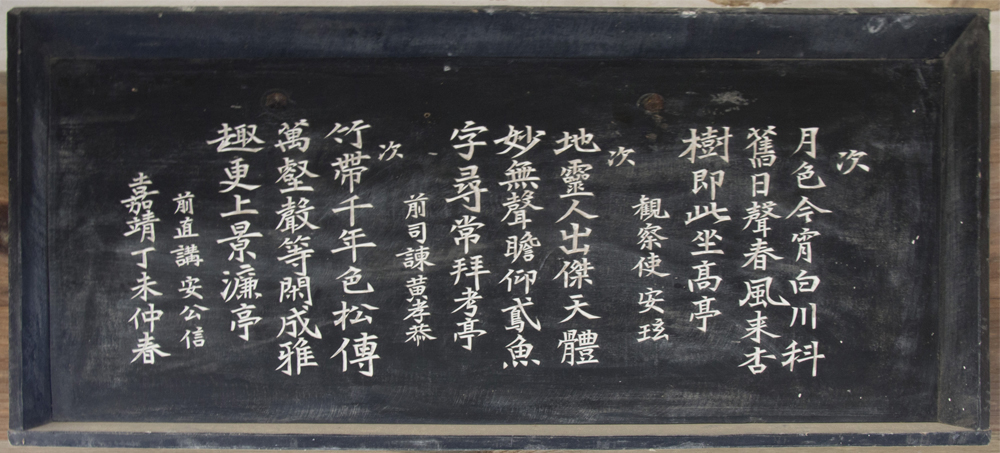 次
月色今宵白川科
舊日聲春風来古
樹即此坐高亭
觀察使 安玹
次
地靈人出傑天體
妙無聲瞻仰鳶魚
字尋常拜考亭
前司諫黃孝恭
次
竹帶千年色松傳
萬壑聲等閑成雅
趣更上景濂亭
前直講安公信
嘉靖丁未仲春